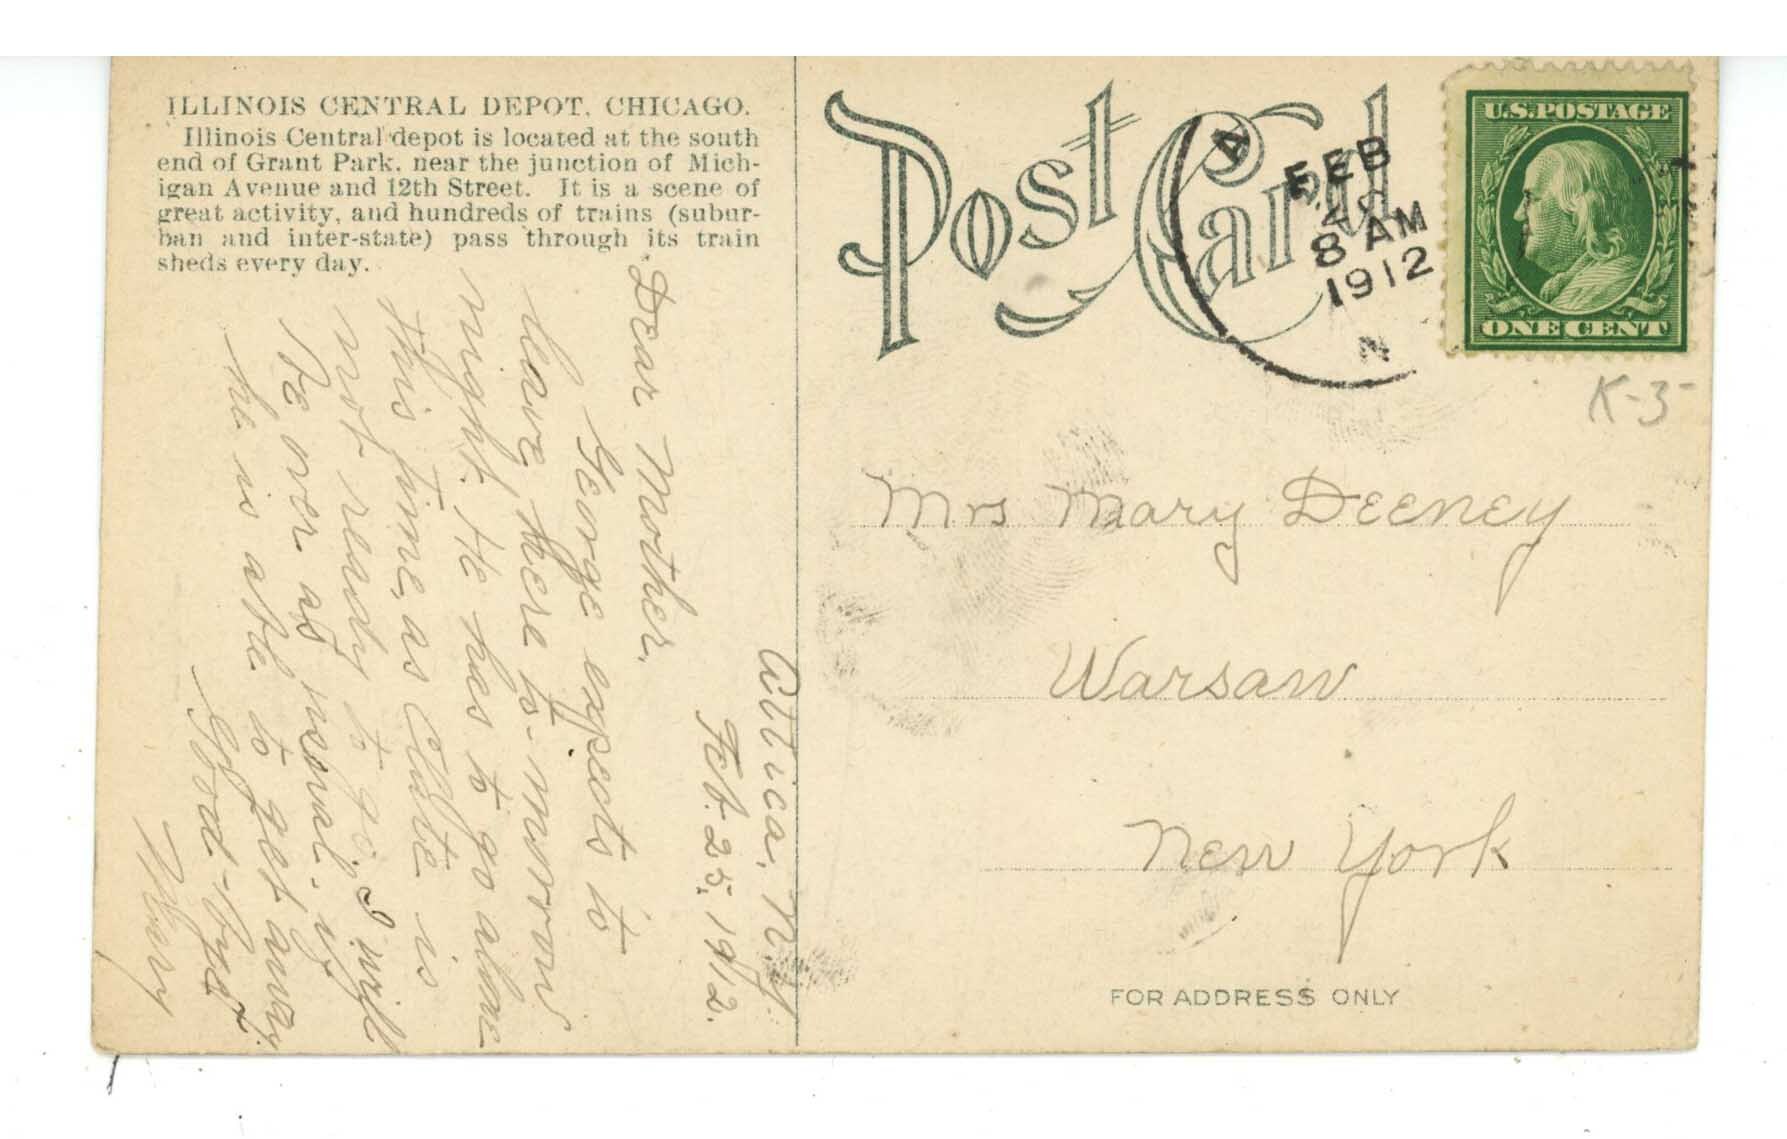 ILLINOIS CENTRAL DEPOT, CHICAGO.
Illinois Central depot is located at the south
end of Grant Park, near the junction of Mich-
igan Avenue and 12th Street. It is a scene of
great activity, and hundreds of trains (subur-
ban and inter-state) pass through its train
sheds every day.
Attica, N.Y.
Feb. 25, 1912.
Dear Mother,
George expects to
leave here to-morrow
night. He has to go alone
this time, as Clste is
not ready to go. I will
be over as usual. if
he is able to get away
Good-bye
Mary
Post Card
A
FEB
8 AM
1912
N
U.S. POSTAGE
ONE CENT
K-3-
Mrs Mary Deeney
Warsaw
New York
FOR ADDRESS ONLY